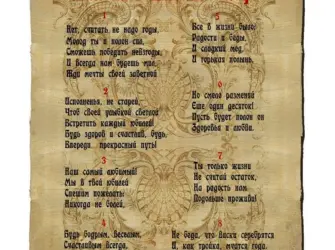 1
Нет, считать не надо годы,
Молод ты и полон сил,
Сможешь победить невзгоды,
И всегда нам будешь мил.
Жди мечты своей заветной
2
Исполненья, не старей,
Чтоб своей улыбкой светлой
Встретить каждый юбилей!
Будь здоров и счастлив, будь
Впереди прекрасный путь!
3
Наш самый любимый!
Мы в твой юбилей
Спешим пожелать:
Никогда не болей.
4
Будь бодрым, веселым,
Счастливым всегда,
5
Все в жизни было:
Радости и беды.
И сладкий мед,
И горькая полынь.
6
Но смело разменяй
Еще один десяток!
Пусть будет полон он
Здоровья и любви.
7
Ты только жизни
Не считай остаток,
На радость нам
Подольше проживи!
8
Не беда, что виски серебрятся
И, как тройка, мчатся года.